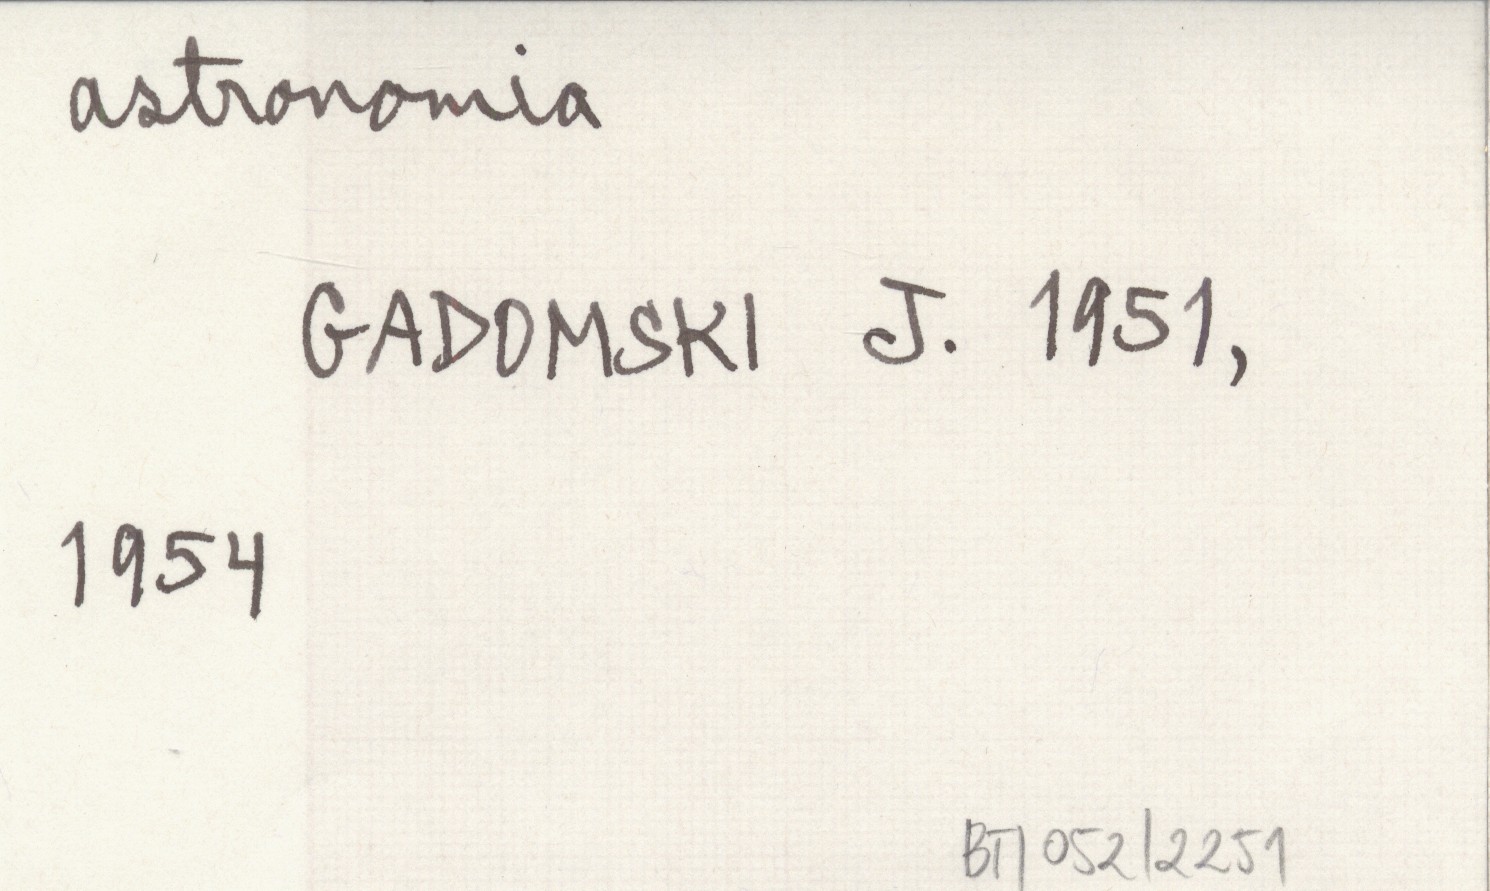 astronomia
GADOMSKI J. 1951,
1954
BT/052/2251